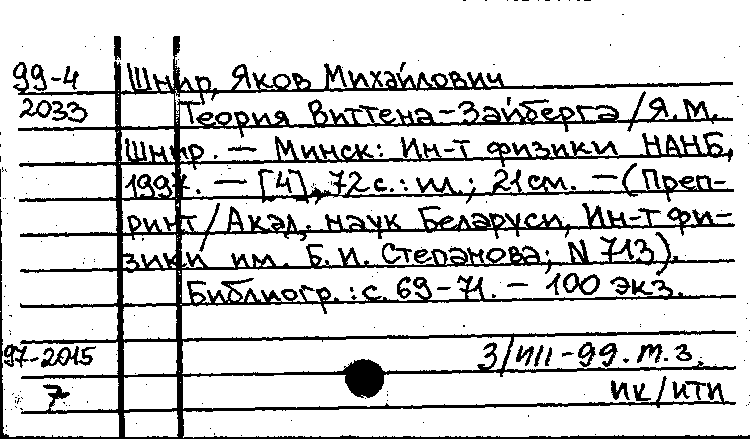 99-4 Шнир, Яков Михайлович
2033 Теория Виттена-Зайберга / Я.М.
Шнир. — Минск: Ин-т физики НАНБ,
1997. — [4], 72 с.: ил.; 21 см. — (Преп-
ринт / Акад. наук Беларуси, Ин-т фи-
зики им. Б. И. Степанова; N 713).
Библиогр.: с. 69-71. — 100 экз.
97-2015 3/III-99. т. з.
7 ИК/ИТИ